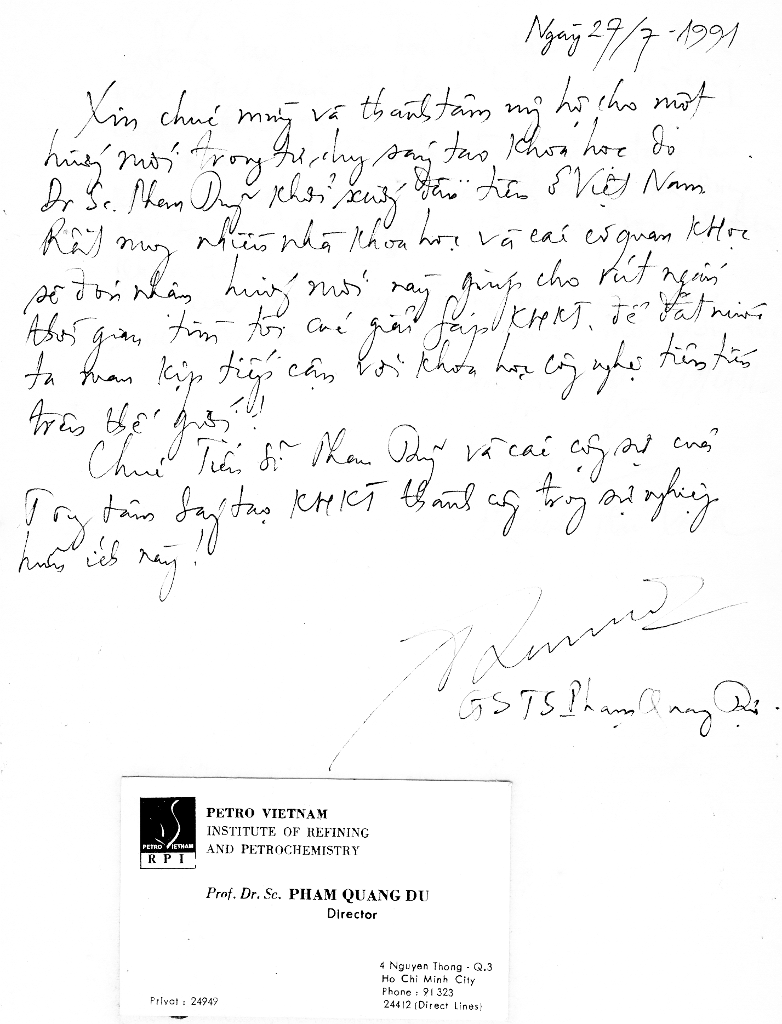 Ngày 27/7-1991
Xin chúc mừng và thành tâm ủng hộ cho một
hướng mới trong tư duy sáng tạo khoa học do
Dr Sc. Phan Dũng khởi xướng đầu tiên ở Việt Nam
Rất mong nhiều nhà khoa học và các cơ quan KHọc
sẽ đón nhận hướng mới này giúp cho rút ngắn
thời gian tìm tòi các giải pháp KHKT, để đất nước
ta mau kịp tiếp cận với khoa học công nghệ tiên tiến
trên thế giới!
Chúc Tiến Sĩ Phan Dũng và các cộng sự của
Trung tâm Sáng tạo KHKT thành công trong sự nghiệp
hữu ích này!
GSTS Phạm Quang Dự.
PETRO VIETNAM
INSTITUTE OF REFINING
AND PETROCHEMISTRY
PETRO VIETNAM
RPI
Prof. Dr. Sc. PHAM QUANG DU
Director
4 Nguyen Thong - Q.3
Ho Chi Minh City
Phone : 91 323
24412 (Direct Lines)
Privat : 24949